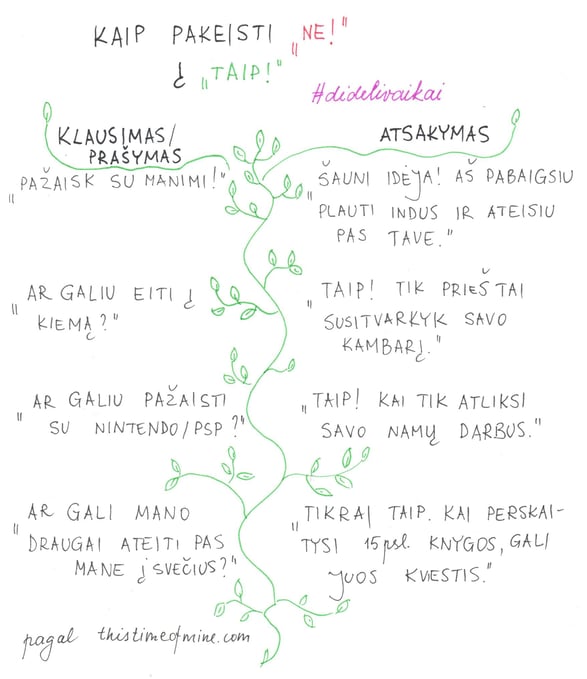 KAIP PAKEISTI „NE!"
Į „TAIP!"
#didelivaikai
KLAUSIMAS/
PRAŠYMAS
„PAŽAISK SU MANIMI!"
„AR GALIU EITI Į
KIEMĄ?"
„AR GALIU PAŽAISTI
SU NINTENDO/PSP?"
„AR GALI MANO
DRAUGAI ATEITI PAS
MANE Į SVEČIUS?"
ATSAKYMAS
„ŠAUNI IDĖJA! AŠ PABAIGSIU
PLAUTI INDUS IR ATEISIU
PAS TAVE."
„TAIP! TIK PRIEŠ TAI
SUSITVARKYK SAVO
KAMBARĮ."
„TAIP! KAI TIK ATLIKSI
SAVO NAMŲ DARBUS."
„TIKRAI TAIP. KAI PERSKAI-
TYSI 15psl. KNYGOS, GALI
JUOS KVESTIS."
pagal thistimeofmine.com